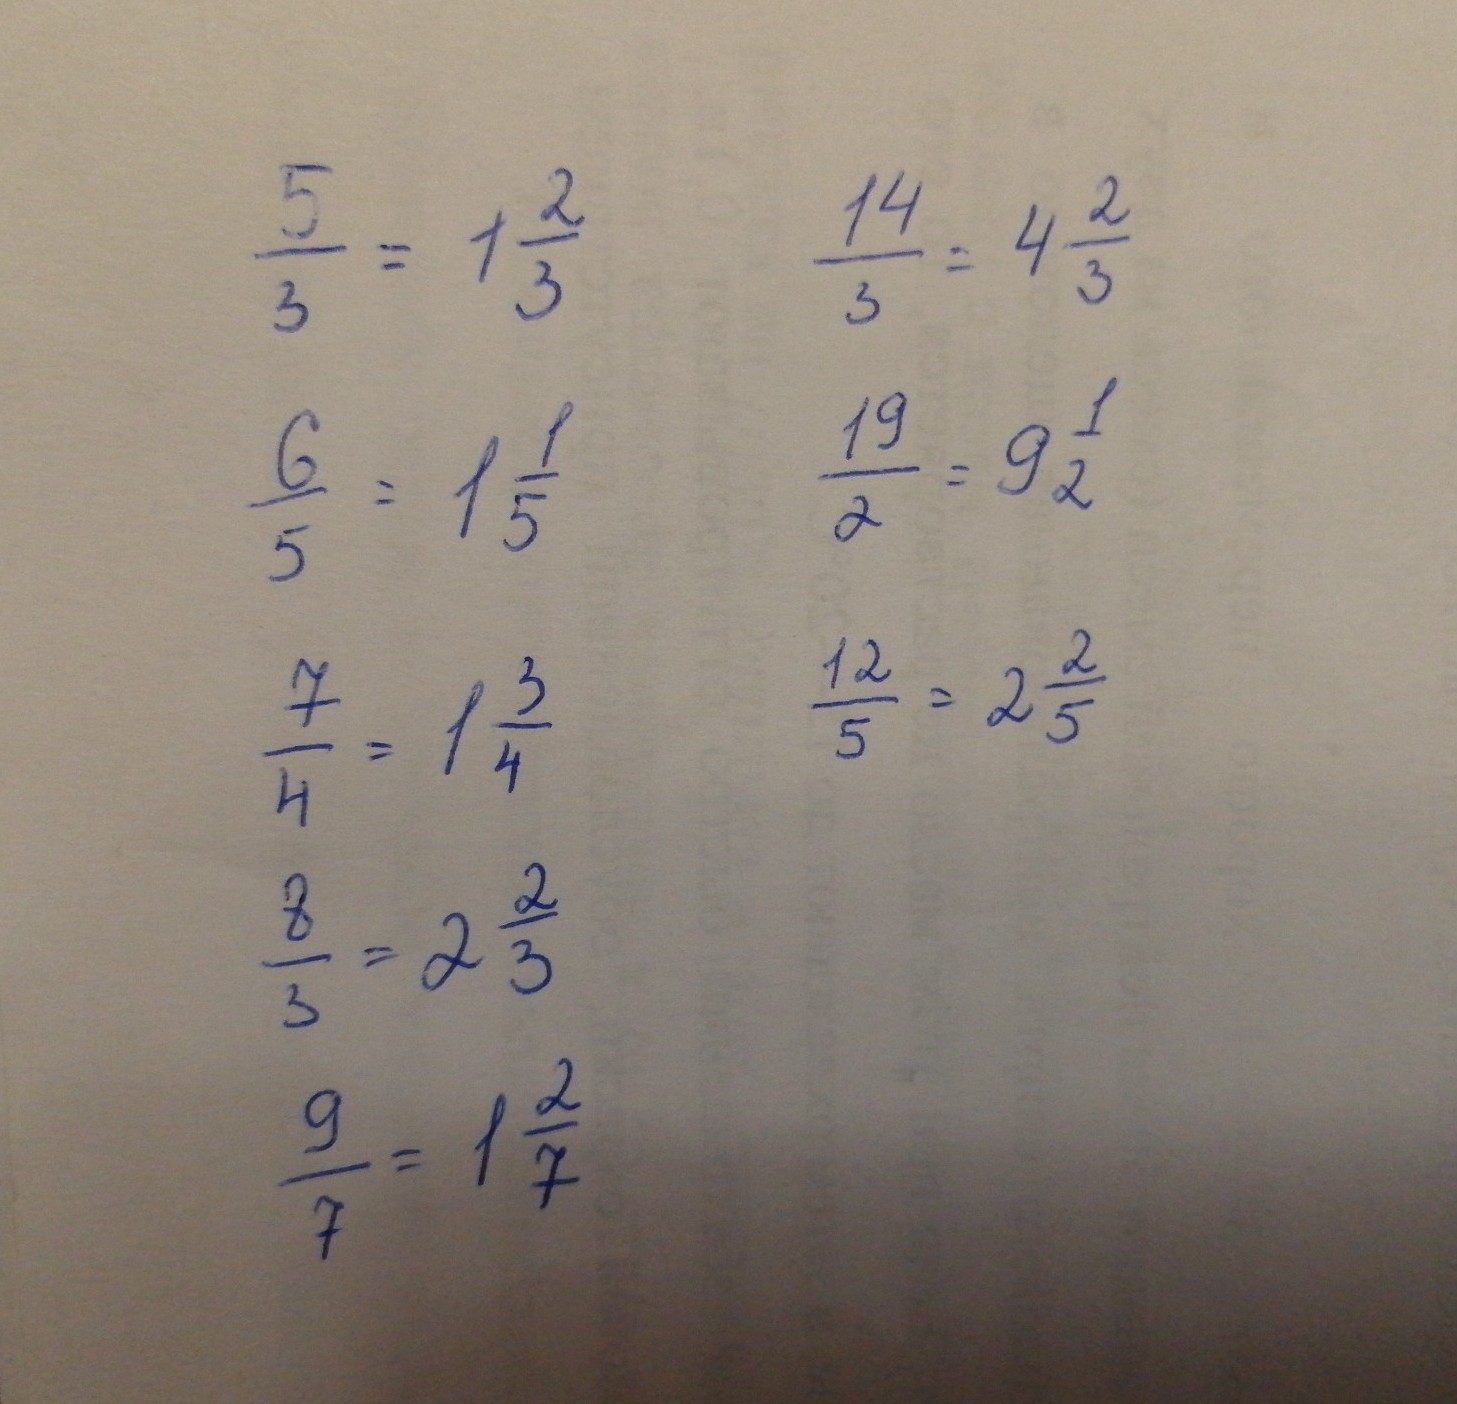 5/3 = 1 2/3
6/5 = 1 1/5
7/4 = 1 3/4
8/3 = 2 2/3
9/7 = 1 2/7
14/3 = 4 2/3
19/2 = 9 1/2
12/5 = 2 2/5